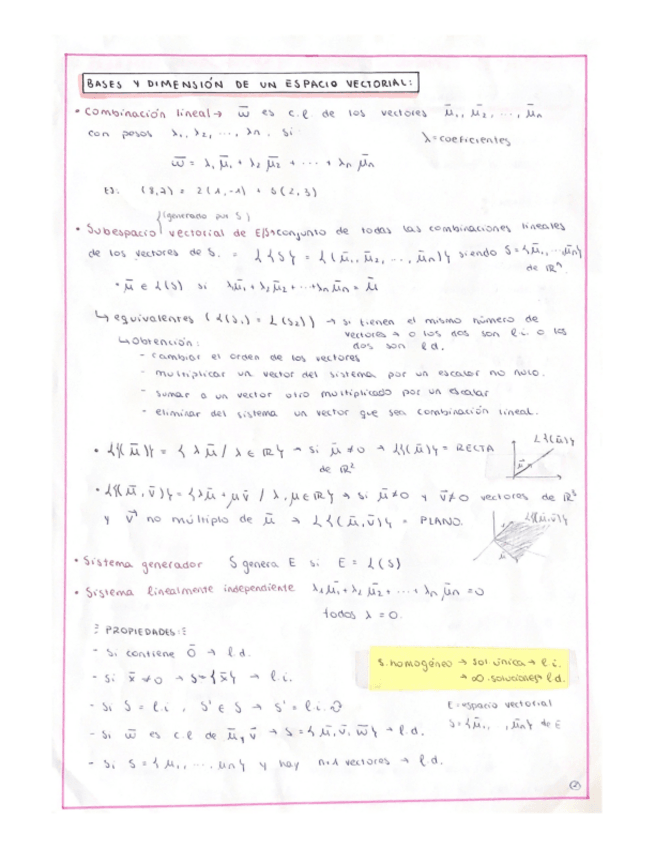 BASES Y DIMENSIÓN DE UN ESPACIO VECTORIAL:
• Combinación lineal → w̄ es c.l. de los vectores ū₁, ū₂, ..., ūn
con pesos λ₁, λ₂, ..., λn, si λ=coeficientes
w̄ = λ₁ū₁ + λ₂ū₂ + ... + λnūn
(generado por S)
• Subespacio vectorial de E → conjunto de todas las combinaciones lineales
de los vectores de S. = L{S} = L{(ū₁, ū₂, ..., ūn)} siendo S={ū₁, ..., ūn}
de ℝⁿ.
• ū ∈ L(S) si λū₁+λ₂ū₂+...+λnūn = ū
↳ equivalentes (L(S₁) = L(S₂)) → si tienen el mismo número de
vectores → o los dos son l.i. o los
dos son l.d.
↳ Obtención:
- cambiar el orden de los vectores
- multiplicar un vector del sistema por un escalar no nulo.
- sumar a un vector otro multiplicado por un escalar
- eliminar del sistema un vector que sea combinación lineal.
• L{(ū)} = {λū / λ ∈ ℝ} → si ū ≠ 0 → L{(ū)} = RECTA
de ℝ²
L{(ū)}
• L{(ū, v̄)} = {λū + μv̄ / λ, μ ∈ ℝ} → si ū≠0 y v̄≠0 vectores de ℝ³
y v̄ no múltiplo de ū → L{(ū, v̄)} = PLANO.
L{(ū, v̄)}
• Sistema generador S genera E si E = L(S)
• Sistema linealmente independiente λ₁ū₁ + λ₂ū₂ + ... + λnūn = 0
todos λ = 0.
PROPIEDADES:
- Si contiene 0̄ → l.d.
- Si x̄ ≠ 0 → S={x̄} → l.i.
S. homogéneo → sol única → l.i.
→ ∞ soluciones → l.d.
- Si S = l.i, S' ∈ S → S' = l.i.
E = espacio vectorial
S={ū₁, , ūn} de E
- Si w̄ es c.l de ū y v̄ → S = {ū, v̄, w̄} → l.d.
- Si S = {u₁, ..., un} y hay n+1 vectores → l.d.
2